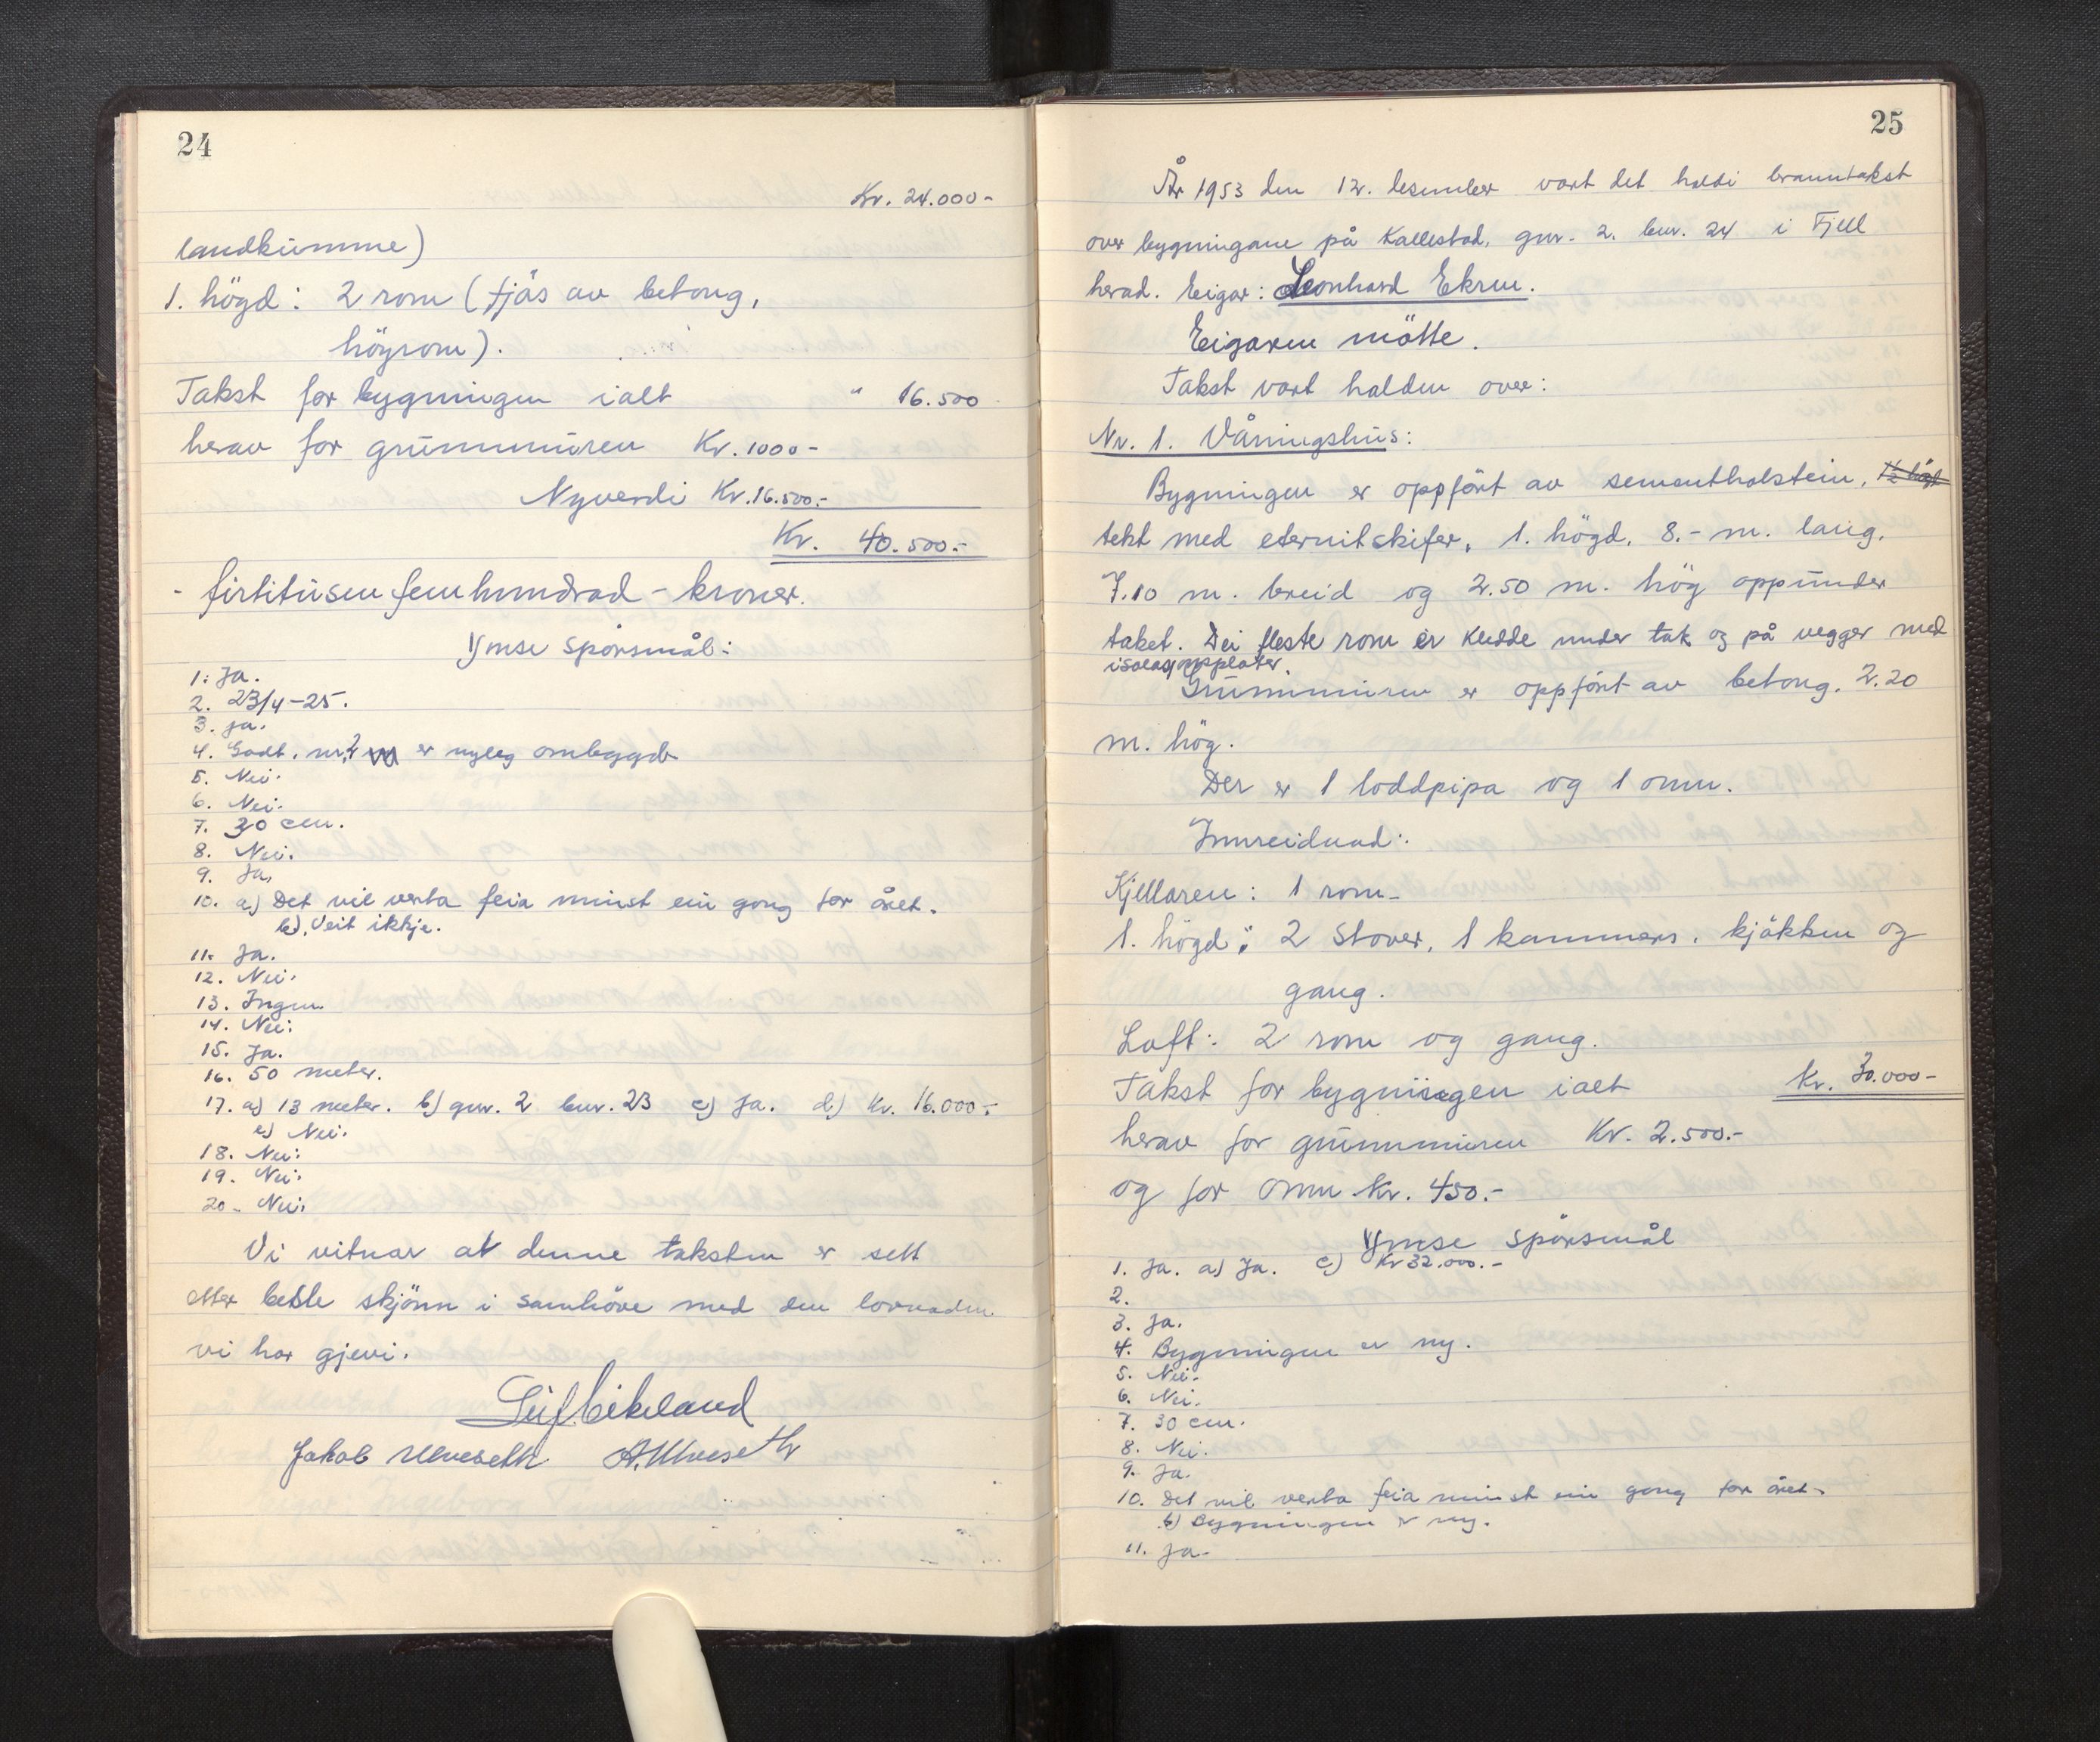 24
Kr. 24.000-
landkumme)
1. högd: 2 rom (fjös av betong,
höyrom).
Takst for bygningen ialt " 16.500
herav for grunnmuren Kr. 1000-
Nyverdi Kr. 16.500.-
Kr. 40.500.-
- förtitusen femhundrad - kroner.
Ymse spörsmål:
1. Ja.
2. 23/4-25.
3. Ja.
4. Godt. nr. 2 er nyleg ombygd
5. Nei.
6. Nei.
7. 30 cm.
8. Nei.
9. Ja,
10. a) Det vil verta feia minst ein gong for året.
b). Veit ikkje.
11. Ja.
12. Nei.
13. Ingen
14. Nei.
15. Ja.
16. 50 meter.
17. a) 13 meter. b) gnr. 2 bnr. 23 c) Ja. d) Kr. 16.000.-
e) Nei.
18. Nei.
19. Nei.
20. Nei.
Vi vitnar at denne taksten er sett
etter beste skjönn i samhöve med den lovnaden
vi har gjevi.
Leif Eikeland
Jakob Ulveseth A. Ulveseth
25
År 1953 den 12. desember vart det haldi branntakst
over bygningane på Kallestad, gnr. 2. bnr. 24 i Fjell
herad. Eigar: Leonhard Ekren.
Eigaren mötte.
Takst vart halden over:
Nr. 1. Våningshus:
Bygningen er oppfört av sementholstein, 1½ högd
tekt med eternitskifer, 1. högd, 8.- m. lang,
7.10 m. breid og 2.50 m. hög oppunder
taket. Dei fleste rom er kledde under tak og på vegger med
isolasjonsplater.
Grunnmuren er oppfört av betong. 2.20
m. hög.
Der er 1 loddpipa og 1 omn.
Innreidnad:
Kjellaren: 1 rom-
1. högd: 2 stover, 1 kammers, kjökken og
gang.
Loft: 2 rom og gang.
Takst for bygningen ialt Kr. 30.000-
herav for grunnmuren Kr. 2.500.-
og for omn kr. 450.-
Ymse spörsmål
1. Ja. a) Ja. c) Kr 32.000.-
2.
3. Ja.
4. Bygningen er ny.
5. Nei.
6. Nei.
7. 30 cm.
8. Nei.
9. Ja.
10. Det vil verta feia minst ein gong for året-
b) Bygningen er ny.
11. Ja-